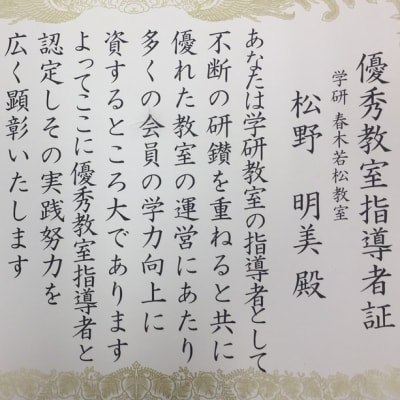 優秀教室指導者証
学研 春木若松教室
松野 明美 殿
あなたは学研教室の指導者として
不断の研鑽を重ねると共に
優れた教室の運営にあたり
多くの会員の学力向上に
資するところ大であります
よってここに優秀教室指導者と
認定しその実践努力を
広く顕彰いたします